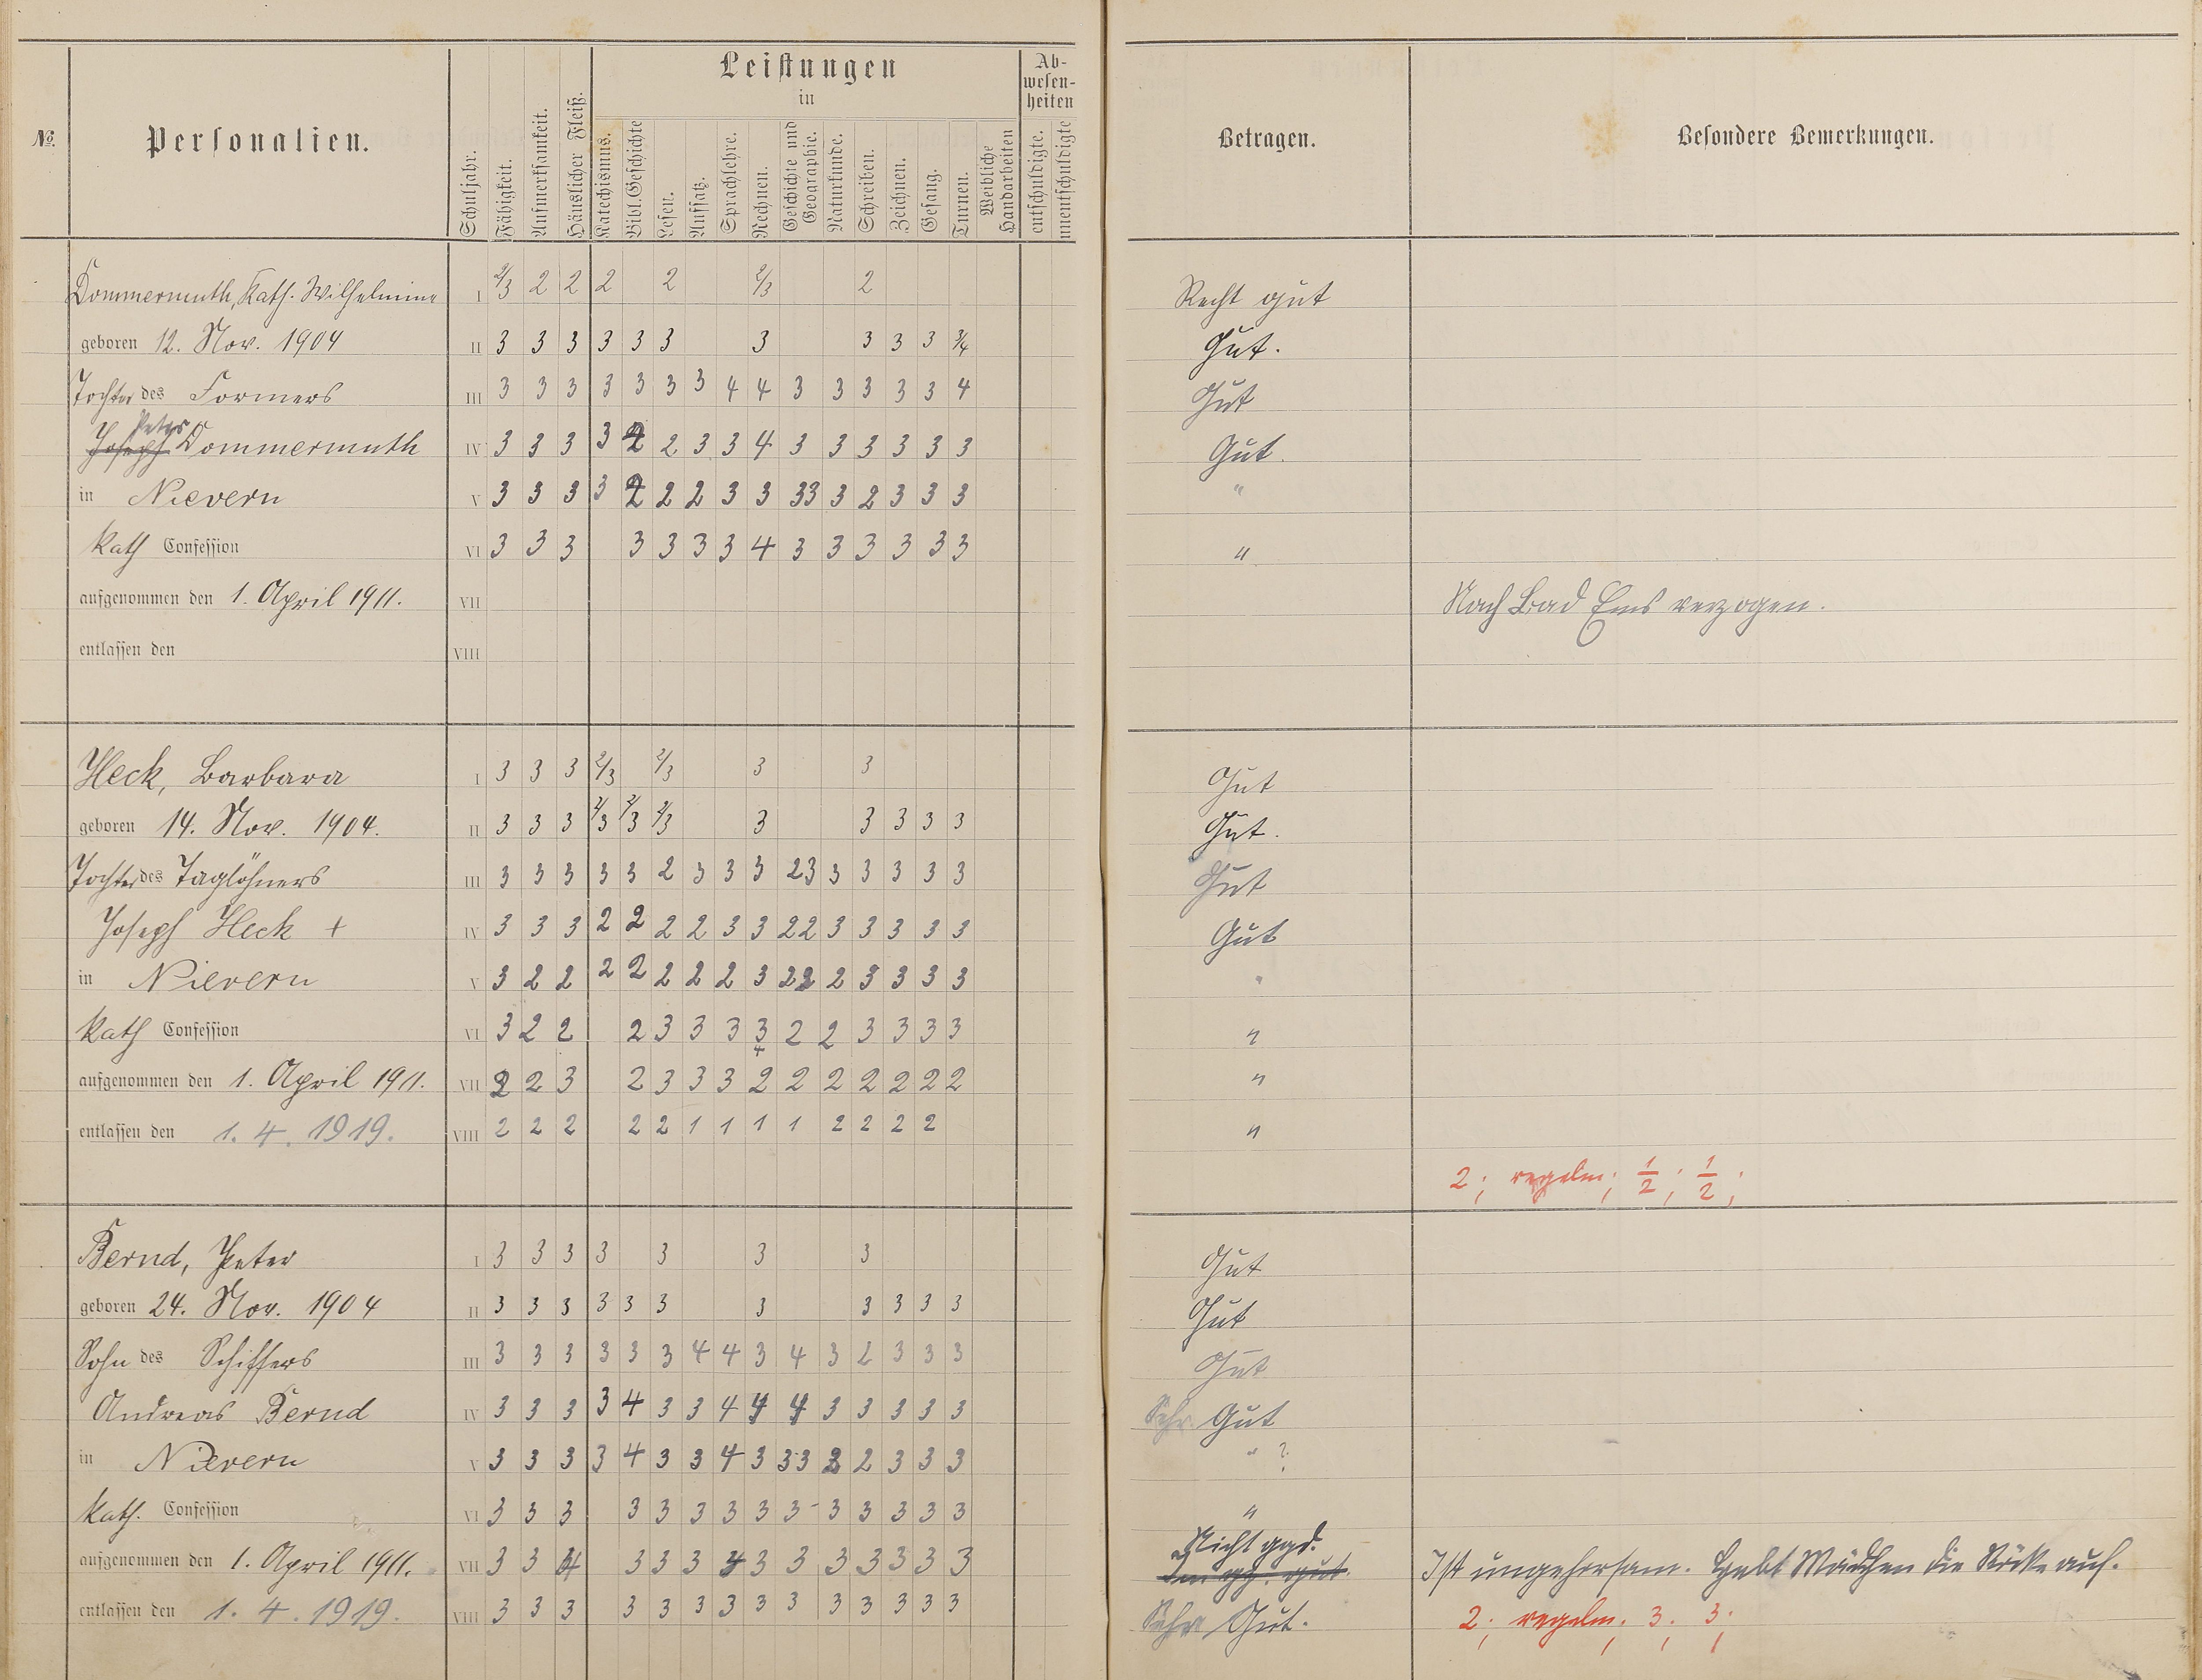 №
Personalien.
Schuljahr.
Fähigkeit.
Aufmerksamkeit.
Häuslicher Fleiß.
Leistungen
in
Katechismus.
Bibl. Geschichte
Lesen.
Aufsatz.
Sprachlehre.
Rechnen.
Geschichte und Geographie.
Naturkunde.
Schreiben.
Zeichnen.
Gesang.
Turnen.
Weibliche Handarbeiten
Ab-
wesen-
heiten
entschuldigte.
unentschuldigte
Betragen.
Besondere Bemerkungen.
Dommermuth, Kath. Wilhelmine I 2/3 2 2 2 2 2/3 2 Recht gut
geboren 12. Nov. 1904 II 3 3 3 3 3 3 3 3 3 3 3/4 Gut.
Tochter des Formers III 3 3 3 3 3 3 3 4 4 3 3 3 3 3 4 Gut
Peter
Joseph Dommermuth IV 3 3 3 3 2 2 3 3 4 3 3 3 3 3 3 Gut.
in Nievern V 3 3 3 3 2 2 2 3 3 33 3 2 3 3 3 "
Kath Confession VI 3 3 3 3 3 3 3 4 3 3 3 3 3 3 "
aufgenommen den 1. April 1911. VII Nach Bad Ems verzogen.
entlassen den VIII
Heck, Barbara I 3 3 3 2/3 2/3 3 3 Gut
geboren 14. Nov. 1904. II 3 3 3 2/3 2/3 2/3 3 3 3 3 3 Gut.
Tochter des Taglöhners III 3 3 3 3 3 2 3 3 3 23 3 3 3 3 3 Gut
Joseph Heck + IV 3 3 3 2 2 2 2 3 3 22 3 3 3 3 3 Gut
in Nievern V 3 2 2 2 2 2 2 2 3 22 2 3 3 3 3 "
Kath Confession VI 3 2 2 2 3 3 3 3 2 2 3 3 3 3 "
+
aufgenommen den 1. April 1911. VII 2 2 3 2 3 3 3 2 2 2 2 2 2 2 "
entlassen den 1. 4. 1919. VIII 2 2 2 2 2 1 1 1 1 2 2 2 2 "
2; regelm; 1/2; 1/2;
Bernd, Peter I 3 3 3 3 3 3 3 Gut
geboren 24. Nov. 1904 II 3 3 3 3 3 3 3 3 3 3 3 Gut
Sohn des Schiffers III 3 3 3 3 3 3 4 4 3 4 3 2 3 3 3 Gut
Andreas Bernd IV 3 3 3 3 4 3 3 4 4 4 3 3 3 3 3 Sehr Gut
in Nievern V 3 3 3 3 4 3 3 4 3 33 2 2 3 3 3 " ?
Kath. Confession VI 3 3 3 3 3 3 3 3 3 - 3 3 3 3 3 "
Nicht ggd.
aufgenommen den 1. April 1911. VII 3 3 4 3 3 3 3 3 3 3 3 3 3 gut. Ist ungehorsam. Hebt Mädchen die Röcke auf.
entlassen den 1. 4. 1919. VIII 3 3 3 3 3 3 3 3 3 3 3 3 3 3 Sehr Gut. 2; regelm; 3; 3;